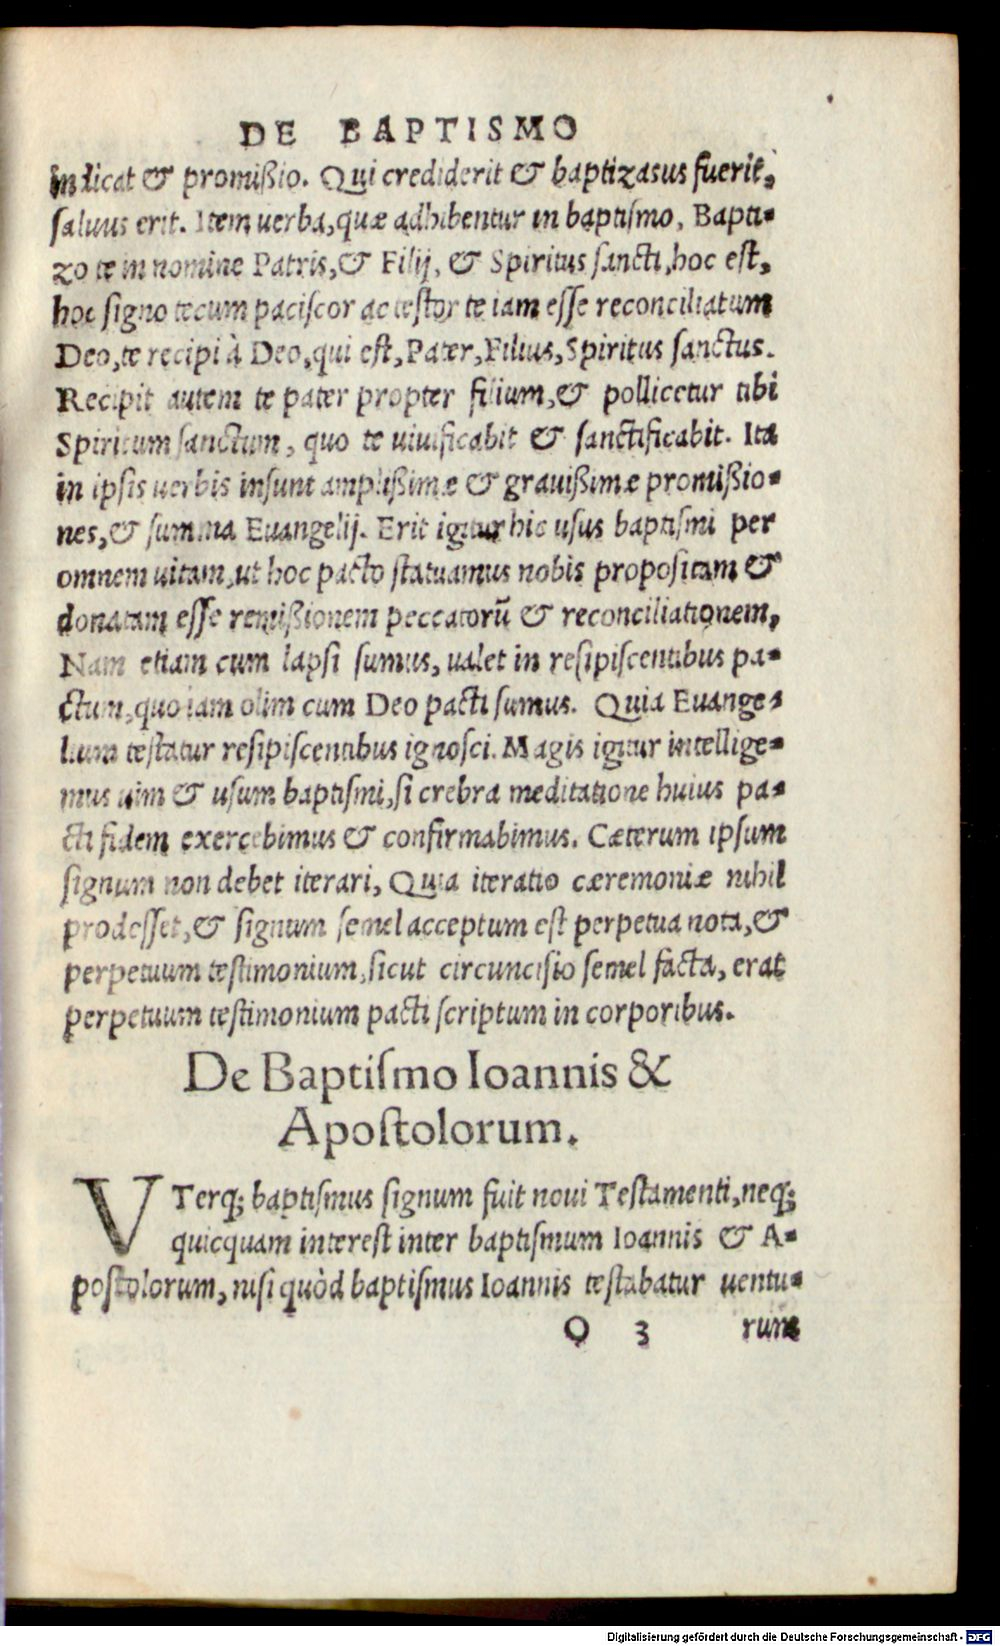 DE BAPTISMO
indicat & promißio. Qui crediderit & baptizasus fuerit,
saluus erit. Item uerba, quæ adhibentur in baptiſmo, Bapti-
zo te in nomine Patris, & Filij, & Spiritus ſancti, hoc eſt,
hoc ſigno tecum paciſcor ac teſtor te iam eſſe reconciliatum
Deo, te recipi à Deo, qui eſt, Pater, Filius, Spiritus ſanctus.
Recipit autem te pater propter filium, & pollicetur tibi
Spiritum ſanctum, quo te uiuificabit & ſanctificabit. Ita
in ipſis uerbis inſunt amplißimæ & grauißimæ promißio-
nes, & ſumma Euangelij. Erit igitur hic uſus baptiſmi per
omnem uitam, ut hoc pacto ſtatuamus nobis propoſitam &
donatam eſſe remißionem peccatorũ & reconciliationem,
Nam etiam cum lapſi ſumus, ualet in reſipiſcentibus pa-
ctum, quo iam olim cum Deo pacti ſumus. Quia Euange-
lium teſtatur reſipiſcentibus ignoſci. Magis igitur intellige-
mus uim & uſum baptiſmi, ſi crebra meditatione huius pa-
cti fidem exercebimus & confirmabimus. Cæterum ipſum
ſignum non debet iterari, Quia iteratio cæremoniæ nihil
prodeſſet, & ſignum ſemel acceptum eſt perpetua nota, &
perpetuum teſtimonium, ſicut circuncisio ſemel facta, erat
perpetuum teſtimonium pacti ſcriptum in corporibus.
De Baptiſmo Ioannis &
Apoſtolorum.
VTerq; baptiſmus ſignum fuit noui Teſtamenti, neq;
quicquam intereſt inter baptiſmum Ioannis & A-
poſtolorum, niſi quòd baptiſmus Ioannis teſtabatur uentu-
O 3 rum
Digitalisierung gefördert durch die Deutsche Forschungsgemeinschaft - DFG